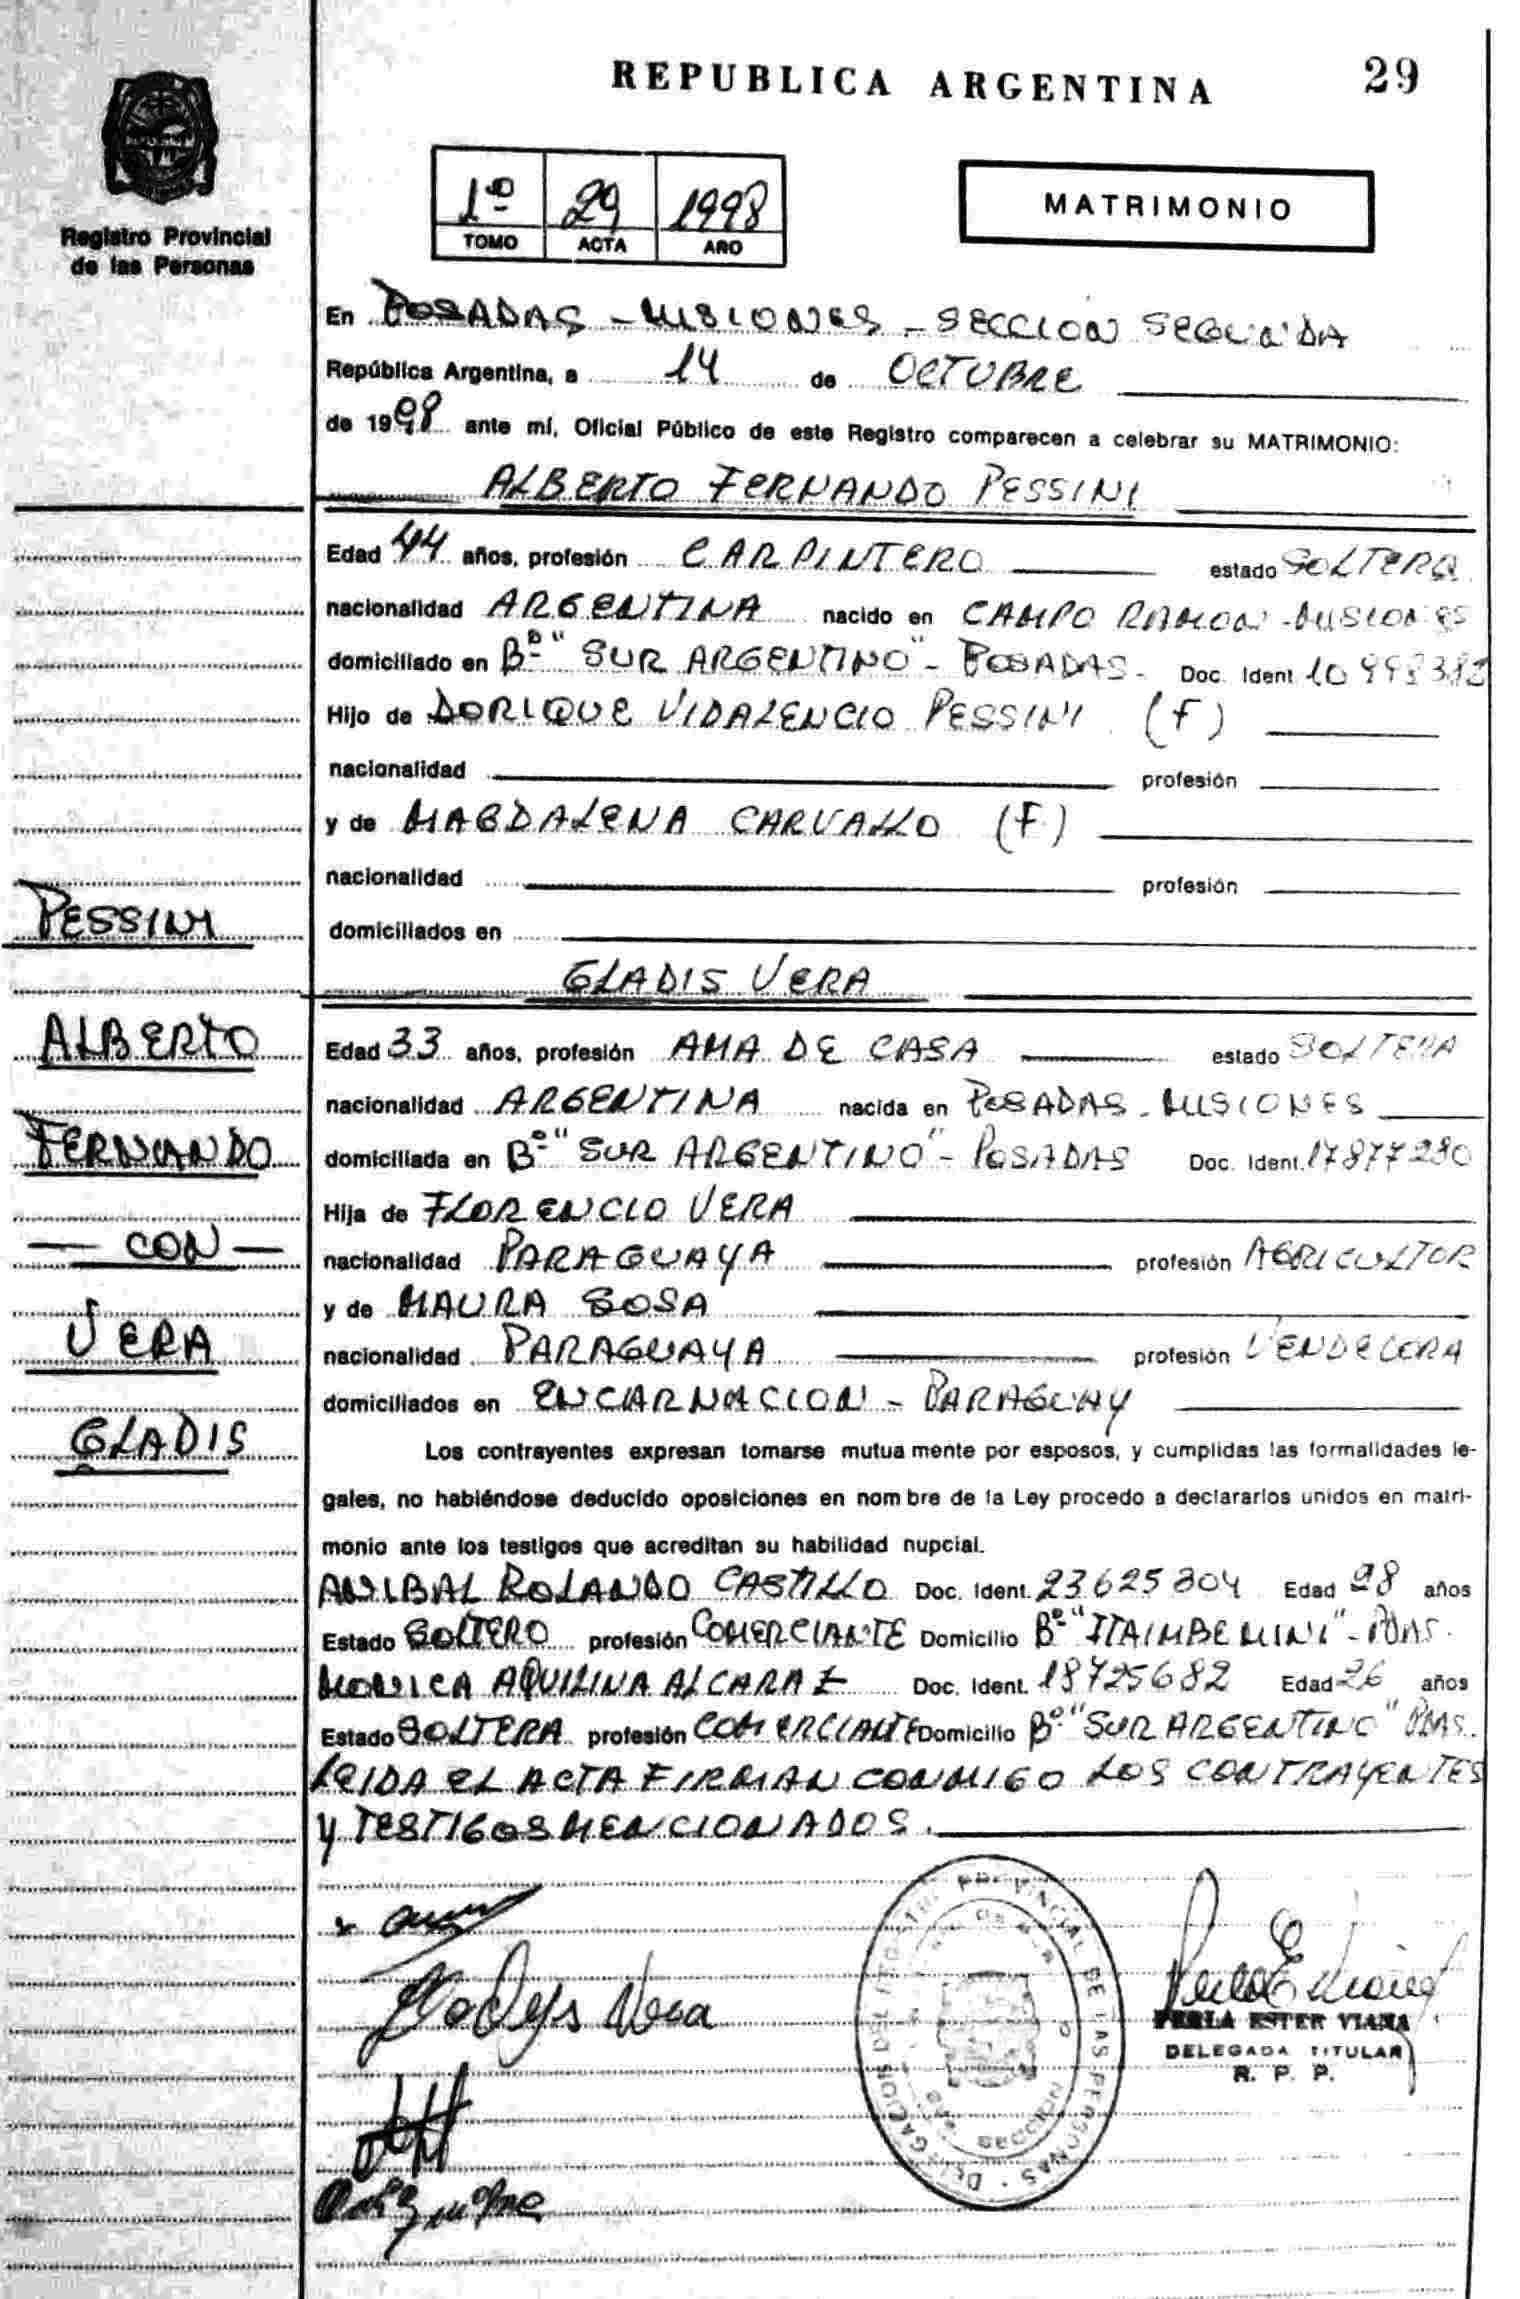 REPUBLICA ARGENTINA 29
Registro Provincial
de las Personas
1º 29 1998
TOMO ACTA AÑO
MATRIMONIO
En POSADAS - MISIONES - SECCION SEGUNDA
República Argentina, a 14 de OCTUBRE
de 1998 ante mí, Oficial Público de este Registro comparecen a celebrar su MATRIMONIO:
ALBERTO FERNANDO PESSINI
Edad 44 años, profesión CARPINTERO estado SOLTERO
nacionalidad ARGENTINA nacido en CAMPO RAMON - MISIONES
domiciliado en Bº "SUR ARGENTINO" - POSADAS - Doc. Ident.
Hijo de DORIQUE VIDALENCIO PESSINI (F)
nacionalidad profesión
y de MAGDALENA CARVALLO (F)
nacionalidad profesión
domiciliados en
GLADIS VERA
Edad 33 años, profesión AMA DE CASA estado SOLTERA
nacionalidad ARGENTINA nacida en POSADAS - MISIONES
domiciliada en Bº "SUR ARGENTINO" - POSADAS Doc. Ident. 17877280
Hija de FLORENCIO VERA
nacionalidad PARAGUAYA profesión AGRICULTOR
y de MAURA SOSA
nacionalidad PARAGUAYA profesión VENDEDORA
domiciliados en ENCARNACION - PARAGUAY
Los contrayentes expresan tomarse mutuamente por esposos, y cumplidas las formalidades le-
gales, no habiéndose deducido oposiciones en nombre de la Ley procedo a declararlos unidos en matri-
monio ante los testigos que acreditan su habilidad nupcial.
ANIBAL ROLANDO CASTILLO Doc. Ident. 23625304 Edad 28 años
Estado SOLTERO profesión COMERCIANTE Domicilio Bº "ITAIMBE MINI" - PDAS.
MONICA AQUILINA ALCARAZ Doc. Ident. 18725682 Edad 26 años
Estado SOLTERA profesión COMERCIANTE Domicilio Bº "SUR ARGENTINO" PDAS.
LEIDA EL ACTA FIRMAN CONMIGO LOS CONTRAYENTES
Y TESTIGOS MENCIONADOS.
PESSINI
ALBERTO
FERNANDO
— CON —
VERA
GLADIS
Gladys Vera
DELEGACION DEL REGISTRO PROVINCIAL DE LAS PERSONAS
SECCION
PERLA ESTER VIANA
DELEGADA TITULAR
R. P. P.